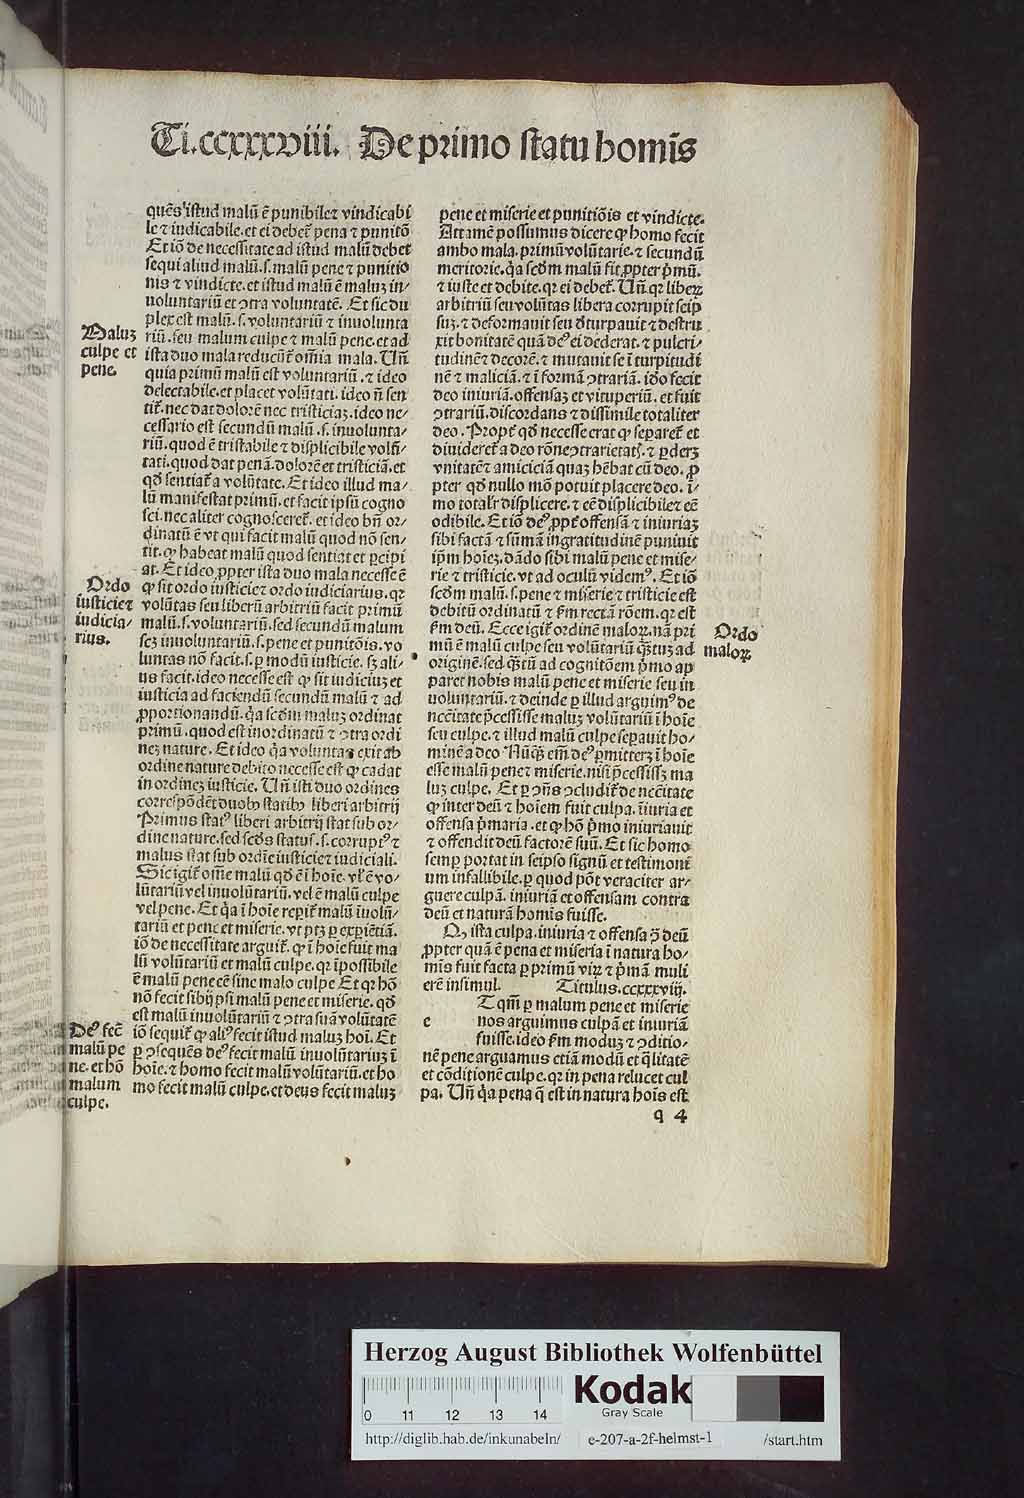 Ti.ccxxxviii. De primo statu homīs
quēs istud malū ē punibile ⁊ vindicabi
le ⁊ iudicabile. et ei debet᷑ pena ⁊ punitō
Et iō de necessitate ad istud malū debet
sequi aliud malū .s. malū pene ⁊ punitio
nis ⁊ vindicte. et istud malū ē maluꝫ in/
voluntariū et ɔtra voluntatē. Et sic du
plex est malū .s. voluntariū ⁊ inuolunta
riū. seu malum culpe ⁊ malū pene. et ad
ista duo mala reducūt᷑ om̄ia mala. Un̄
quia primū malū est voluntariū. ⁊ ideo
delectabile. et placet volūtati. ideo n̄ sen
tit᷑. nec dat dolorē nec tristiciaꝫ. ideo ne/
cessario est secundū malū .s. inuolunta/
riū. quod ē tristabile ⁊ displicibile volū/
tati. quod dat penā. dolorē et tristiciā. et
qd̄ sentiat᷑ a volūtate. Et ideo illud ma/
lū manifestat primū. et facit ipsū cogno
sci. nec aliter cognosceret᷑. et ideo bn̄ or/
dinatū ē vt qui facit malū quod nō sen/
tit. ꝙ habeat malū quod sentiat et ꝑcipi
at. Et ideo ꝓpter ista duo mala necesse ē
ꝙ sit ordo iusticie ⁊ ordo iudiciarius. qꝛ
volūtas seu liberū arbitriū facit primū
malū .s. voluntariū. sed secundū malum
scꝫ inuoluntariū .s. pene et punitōis. vo
luntas nō facit .s. ꝑ modū iusticie. sꝫ ali/
us facit. ideo necesse est ꝙ sit iudiciuꝫ et
iusticia ad faciendū secundū malū ⁊ ad
ꝓportionandū. q̄a scd̄m maluꝫ ordinat
primū. quod est inordinatū ⁊ ɔtra ordi
neꝫ nature. Et ideo q̄a voluntas exit ab
ordine nature debito necesse est ꝙ cadat
in ordineꝫ iusticie. Un̄ isti duo ordines
correspōdēt duobꝰ statibꝰ liberi arbitrij
Primus statꝰ liberi arbitrij stat sub or/
dine nature. sed scd̄s status .s. corruptꝰ ⁊
malus stat sub ordīe iusticie ⁊ iudiciali.
Sic igit᷑ om̄e malū qd̄ ē ī hoīe. vꝉ ē vo/
lūtariū vel inuolūtariū. vel ē malū culpe
vel pene. Et q̄a ī hoīe reꝑit᷑ malū īuolū/
tariū et pene et miserie. vt ptꝫ ꝑ exꝑiētiā.
iō de necessitate arguit᷑. ꝙ ī hoīe fuit ma
lū volūtariū et malū culpe. qꝛ īpossibile
ē malū pene eē sine malo culpe Et qꝛ hō
nō fecit sibijpsi malū pene et miserie. qd̄
est malū inuolūtariū ⁊ ɔtra suā volūtatē
iō sequit᷑ ꝙ aliꝰ fecit istud maluꝫ hoī. Et
ꝑ ɔsequēs deꝰ fecit malū inuolūtariuꝫ ī
hoīe. ⁊ homo fecit malū volūtariū. et ho
mo fecit malū culpe. et deus fecit maluꝫ
Maluꝫ
culpe et
pene.
Ordo
iusticie ⁊
iudicia/
rius.
Deꝰ fec̄
malū pe
ne. et hō
malum
culpe.
pene et miserie et punitiōis et vindicte.
Attamē possumus dicere ꝙ homo fecit
ambo mala. primū volūtarie. ⁊ secundū
meritorie. q̄a scd̄m malū fit ꝓpter p̄mū.
⁊ iuste et debite. qꝛ ei debet᷑. Un̄ qꝛ liberꝝ
arbitriū seu volūtas libera corrupit seip
suꝫ. ⁊ deformauit seu d̄turpauit ⁊ destru
xit bonitatē quā deꝰ ei dederat. ⁊ pulcri/
tudinē ⁊ decorē. ⁊ mutauit se ī turpitudi
nē ⁊ maliciā. ⁊ ī formā ɔtrariā. id̄o fecit
deo iniuriā. offensaꝫ et vituperiū. et fuit
ɔtrariū. discordans ⁊ dissimile totaliter
deo. Propt̄ qd̄ necesse erat ꝙ separet᷑ et
diuideret᷑ a deo rōne ɔtrarietatꝭ. ⁊ ꝑderꝫ
vnitatē ⁊ amiciciā quaꝫ hēbat cū deo. ꝓ
pter qd̄ nullo mō potuit placere deo. ī/
mo totalr̄ displicere. ⁊ eē displicibile ⁊ eē
odibile. Et iō deꝰ ꝓpt̄ offensā ⁊ iniuriaꝫ
sibi factā ⁊ sūmā ingratitudinē puniuit
ip̄m hoīeꝫ. dādo sibi malū pene et mise/
rie ⁊ tristicie. vt ad oculū videmꝰ. Et iō
scd̄m malū .s. pene ⁊ miserie ⁊ tristicie est
debitū ordinatū ⁊ ẜm rectā rōem. qꝛ est
ẜm deū. Ecce igit᷑ ordinē maloꝝ. nā pri
mū ē malū culpe seu volūtariū q̄ꝫtuꝫ ad
originē. sed q̄ꝫtū ad cognitōem p̄mo ap
paret nobis malū pene et miserie seu in
uoluntariū. ⁊ deinde ꝑ illud arguimꝰ de
necc̄itate p̄cessisse maluꝫ volūtariū ī hoīe
seu culpe. ⁊ illud malū culpe seꝑauit ho/
minē a deo Nūqꝫ em̄ deꝰ ꝑmitterꝫ ī hoīe
esse malū pene ⁊ miserie. nisi p̄cessissꝫ ma
luꝫ culpe. Et ꝑ ɔn̄s ɔcludit᷑ de necc̄itate
ꝙ inter deū ⁊ hoīem fuit culpa. īiuria et
offensa p̄maria. et ꝙ hō p̄mo iniuriauit
⁊ offendit deū factorē suū. Et sic homo
semꝑ portat in seipso signū et testimoni
um infallibile. ꝑ quod pōt veraciter ar/
guere culpā. iniuriā et offensam contra
deū et naturā homīs fuisse.
Q ista culpa. iniuria ⁊ offensa ɔ̄ deū
ꝓpter quā ē pena et miseria ī natura ho/
mīs fuit facta ꝑ primū viꝝ ⁊ p̄mā muli
erē insimul. Titulus.ccxxxviij.
e
T qm̄ ꝑ malum pene et miserie
nos arguimus culpā et iniuriā
fuisse. ideo ẜm moduꝫ ⁊ ɔditio/
nē pene arguamus etiā modū et q̄litatē
et cōditionē culpe. qꝛ in pena relucet cul
pa. Un̄ q̄a pena q̄ est in natura hoīs est
Ordo
maloꝝ.
q 4
Herzog August Bibliothek Wolfenbüttel
Kodak
Gray Scale
0 11 12 13 14
http://diglib.hab.de/inkunabeln/ e-207-a-2f-helmst-1 /start.htm